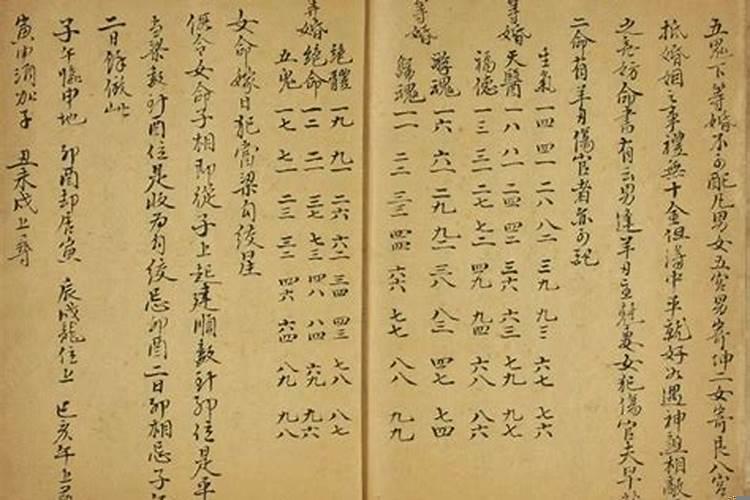 五鬼下等婚不可配凡男女五宮男寄坤二女寄艮八宮
抵婚姻之事禮無十全但得中平就好如遇神煞相敵
之無妨命書有云男逢羊刃主剋妻女犯傷官夫早
二命有羊刃傷官者亦可配
等婚
生氣 一四 四一 二八 八二 三九 九三 六七 七六
天醫 一八 八一 二四 四二 三六 六三 七九 九七
福德 一三 三一 二七 七二 四九 九四 六八 八六
等婚
遊魂 一六 六一 二九 九二 三八 八三 四七 七四
歸魂 一一 二二 三三 四四 六六 七七 八八 九九
等婚
絕體 一九 九一 二六 六二 三四 四三 七八 八七
絕命 一二 二一 三七 七三 四八 八四 六九 九六
五鬼 一七 七一 二三 三二 四六 六四 八九 九八
女命嫁日犯當梁勾絞星
假令女命子相即從子上起建順數到卯位是平
当梁數到酉位是收為勾絞忌卯酉二日卯相忌子
二日餘倣此
子午臨申地 卯酉却居寅 辰戌龍位上 巳亥午上
寅申須加子 丑未戌上尋